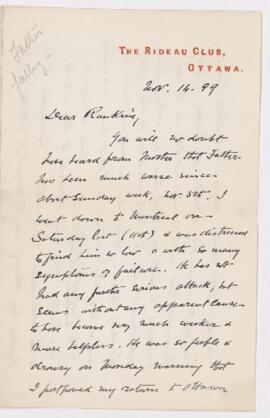 Father
failing -
THE RIDEAU CLUB,
OTTAWA.
Nov. 14. 99
Dear Rankine,
You will no doubt
have heard from Mother that Father
has been much worse since
about Sunday week, Nov. 5th. I
went down to Montreal on
Saturday last (11th) & was distressed
to find him so low & with so many
symptoms of failure. He has not
had any further serious attack, but
seems without any apparent cause
to have become very much weaker &
more helpless. He was so feeble &
drowsy on Monday morning that
I postponed my return to Ottawa